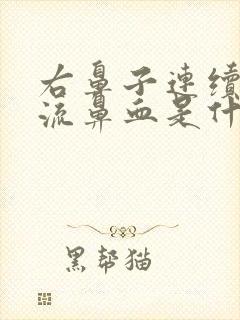 右鼻子連續
流鼻血是什
黑帮猫